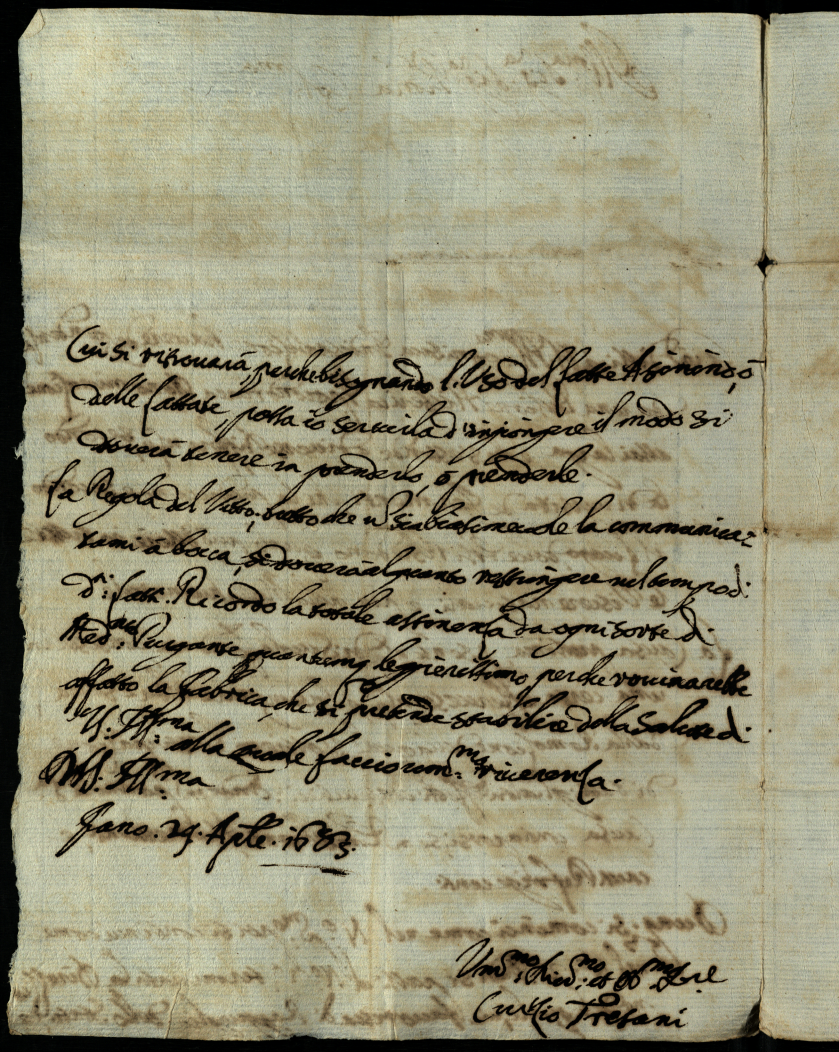 Cui si ritrouarà, perche bisognando l'Uso del latte Asinino, ò
delle lattate, possa io seruirla d'ingiongere il modo si
douerà tenere in prenderlo, ò prenderle.
La Regola del Vitto, tutto che sia biasimeuole la communica-
tami à bocca, si douerà alquanto restringere nel tempo di
d.i latti. Ricordo la totale astinenza da ogni sorte di
Med.na Purgante quantunq legierissimo, perche rouinarebbe
affatto la fabbrica, che si pretende stabilire della Salute di
V. Ill.ma alla quale faccio um.ma riuerenza.
V.S. Ill.ma
Fano. 24. Aple. 1683.
Um.mo, Diu.mo et Ob.mo Ser.e
Curtio Tresani